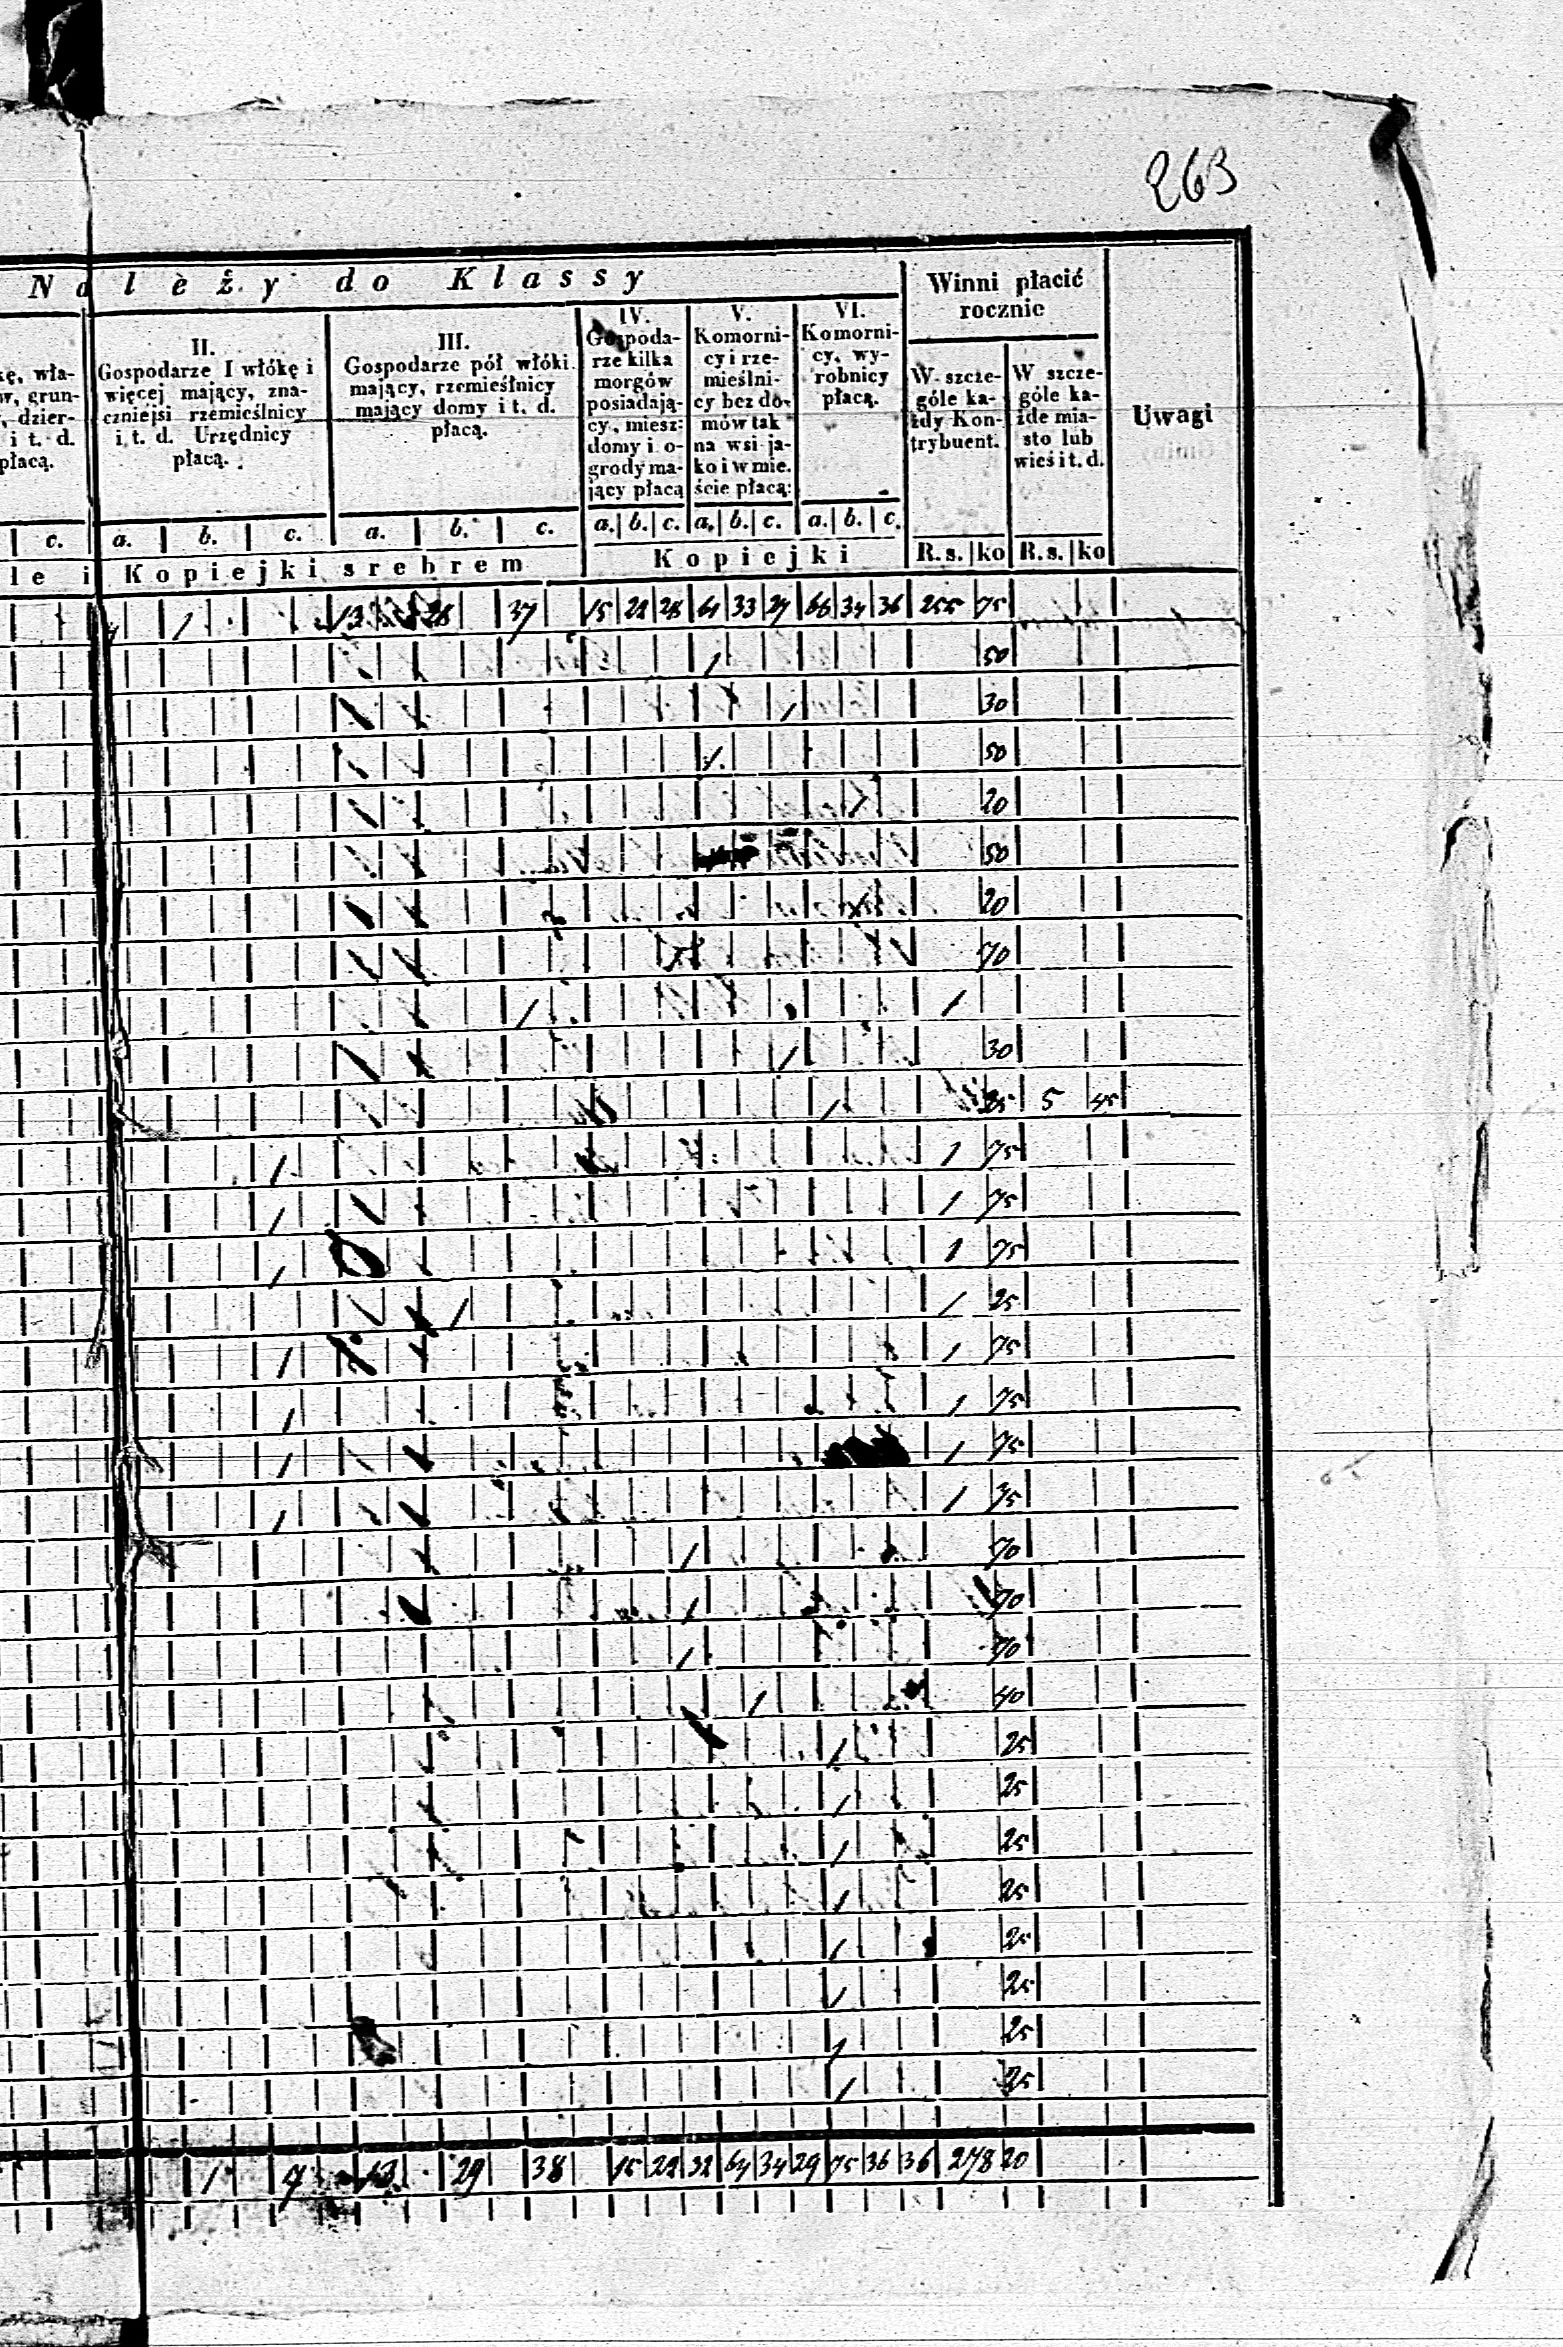 263
Należy do Klassy
Winni płacić
rocznie
kę, wła-
w, grun-
, dzier-
i t. d.
płacą.
II.
Gospodarze I włókę i
więcej mający, zna-
czniejsi rzemieślnicy
i t. d. Urzędnicy
płacą.
III.
Gospodarze pół włóki
mający, rzemieślnicy
mający domy i t. d.
płacą.
IV.
Gospoda-
rze kilka
morgów
posiadają-
cy, miesz:
domy i o-
grody ma-
jący płacą
V.
Komorni-
cy i rze-
mieślni-
cy bez do-
mów tak
na wsi ja-
ko i w mie.
ście płacą:
VI.
Komorni-
cy, wy-
robnicy
płacą.
W szcze-
góle ka-
żdy Kon-
trybuent.
W szcze-
góle ka-
żde mia-
sto lub
wieś i t. d.
Uwagi
c. a. b. c. a. b. c. a. b. c. a. b. c. a. b. c.
le i Kopiejki srebrem Kopiejki R. s. ko R. s. ko
1 13 28 37 15 22 28 61 33 27 66 34 36 255 75
1 50
1 30
1 50
20
50
20
70
1 1
1 30
1 25 5 45
1 1 75
1 1 75
1 1 75
1 1 25
1 1 75
1 1 75
1 1 75
1 1 75
1 70
1 70
1 70
1 40
1 25
1 25
1 25
1 25
1 25
1 25
1 25
1 25
1 7 13 29 38 15 22 32 64 34 29 75 36 36 278 20